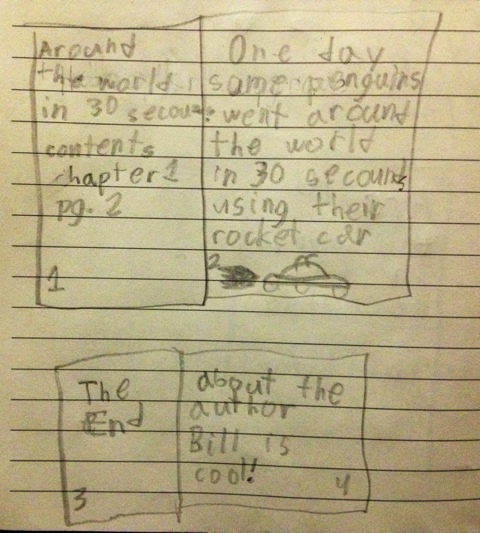 Around
the world
in 30 seconds
contents
chapter 1
pg. 2
1
One day
some penguins
went around
the world
in 30 seconds
using their
rocket car
2
The
End
3
about the
author
Bill is
cool!
4